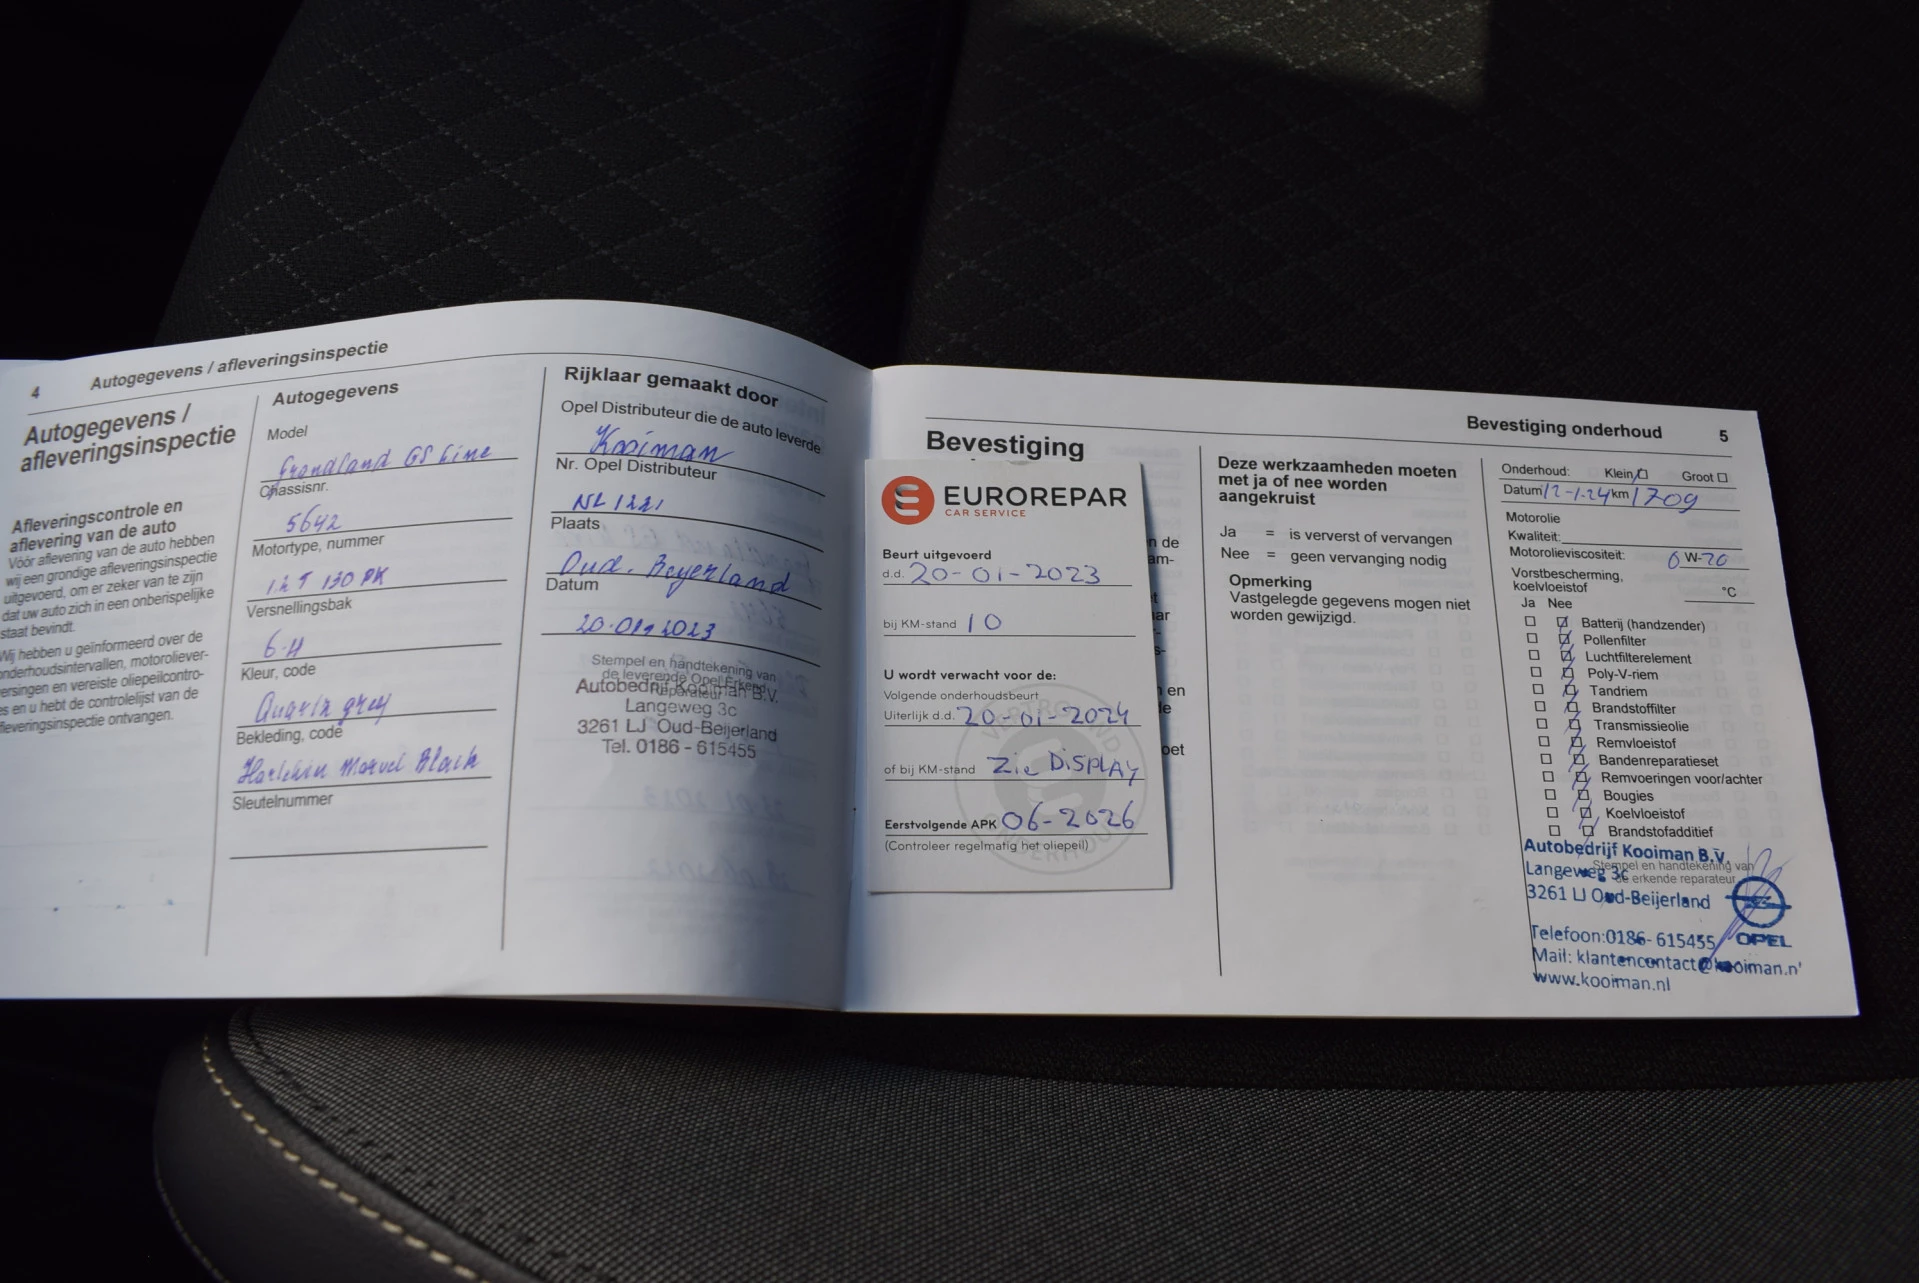 4 Autogegevens / afleveringsinspectie
Autogegevens /
afleveringsinspectie
Afleveringscontrole en
aflevering van de auto
Vóór aflevering van de auto hebben
wij een grondige afleveringsinspectie
uitgevoerd, om er zeker van te zijn
dat uw auto zich in een onberispelijke
staat bevindt.
Wij hebben u geïnformeerd over de
onderhoudsintervallen, motoroliever-
versingen en vereiste oliepeilcontro-
es en u hebt de controlelijst van de
fleveringsinspectie ontvangen.
Autogegevens
Model
Grandland GS Line
Chassisnr.
5642
Motortype, nummer
1.2 T 130 PK
Versnellingsbak
6-H
Kleur, code
grey
Bekleding, code
Black
Sleutelnummer
Rijklaar gemaakt door
Opel Distributeur die de auto leverde
Kooiman
Nr. Opel Distributeur
NL 1221
Plaats
Oud-Beyerland
Datum
20-01-2023
Stempel en handtekening van
de leverende Opel Erkend
Reparateur
Autobedrijf Kooiman B.V.
Langeweg 3c
3261 LJ Oud-Beijerland
Tel. 0186 - 615455
Bevestiging onderhoud 5
Bevestiging
EUROREPAR
CAR SERVICE
Beurt uitgevoerd
d.d. 20-01-2023
bij KM-stand 10
U wordt verwacht voor de:
Volgende onderhoudsbeurt
Uiterlijk d.d. 20-01-2024
of bij KM-stand Zie DiSPLAY
Eerstvolgende APK 06-2026
(Controleer regelmatig het oliepeil)
VERTROUWD
ONDERHOUD
n de
am-
en
oet
Deze werkzaamheden moeten
met ja of nee worden
aangekruist
Ja = is ververst of vervangen
Nee = geen vervanging nodig
Opmerking
Vastgelegde gegevens mogen niet
worden gewijzigd.
Onderhoud: Klein Groot
Datum 12-1-24 km 1709
Motorolie
Kwaliteit:
Motorolieviscositeit: 0 W-20
Vorstbescherming,
koelvloeistof °C
Ja Nee
Batterij (handzender)
Pollenfilter
Luchtfilterelement
Poly-V-riem
Tandriem
Brandstoffilter
Transmissieolie
Remvloeistof
Bandenreparatieset
Remvoeringen voor/achter
Bougies
Koelvloeistof
Brandstofadditief
Stempel en handtekening van
de erkende reparateur
Autobedrijf Kooiman B.V.
Langeweg 3c
3261 LJ Oud-Beijerland
Telefoon:0186-615455
OPEL
Mail: klantencontact@kooiman.n
www.kooiman.nl